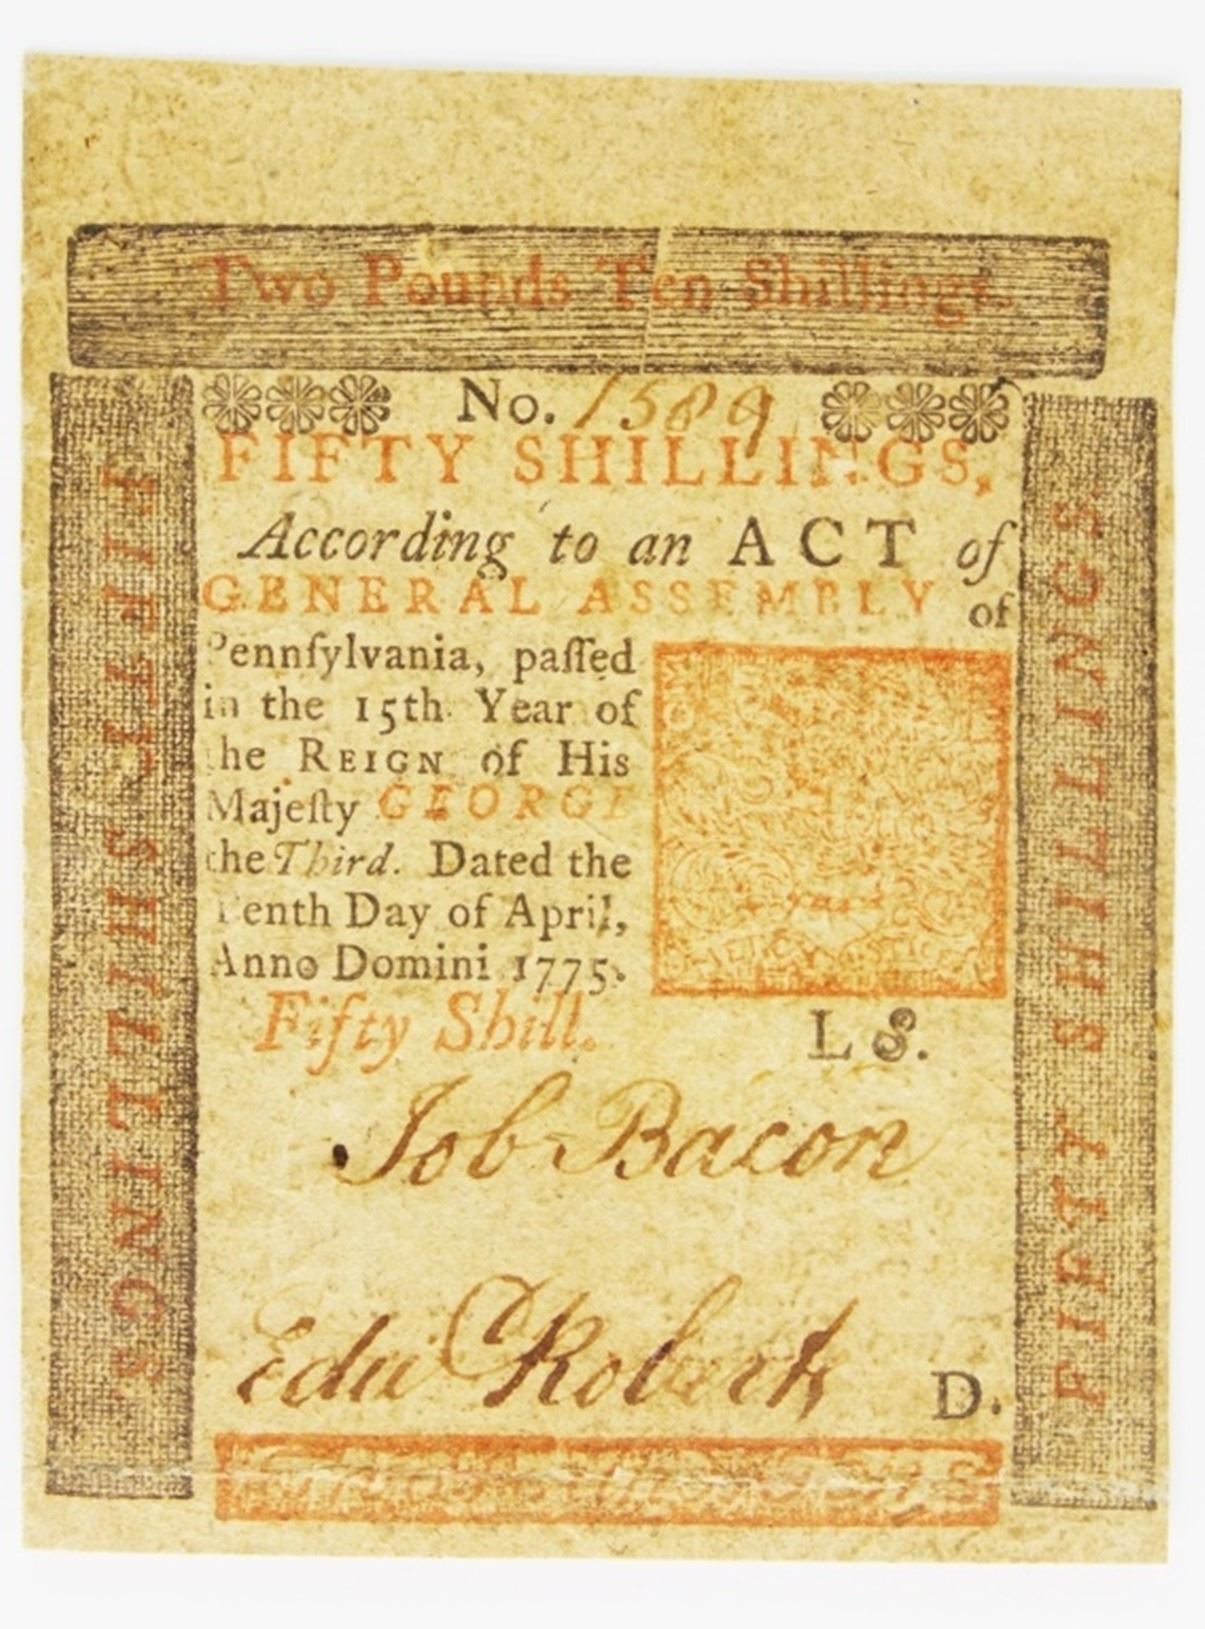 Two Pounds Ten Shillings.
No. 1589
FIFTY SHILLINGS,
According to an ACT of
GENERAL ASSEMBLY of
Pennſylvania, paſſed
in the 15th Year of
the REIGN of His
Majeſty GEORGE
the Third. Dated the
Tenth Day of April,
Anno Domini 1775.
Fifty Shill.
L S.
Job Bacon
Edwd Roberts
D.
FIFTY SHILLINGS
FIFTY SHILLINGS.